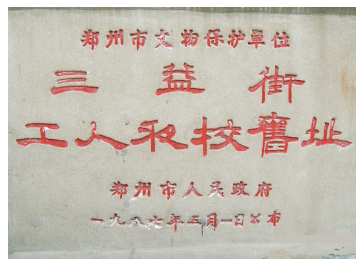 郑州市文物保护單位
三益街
工人夜校舊址
郑州市人民政府
一九八七年三月一日公布